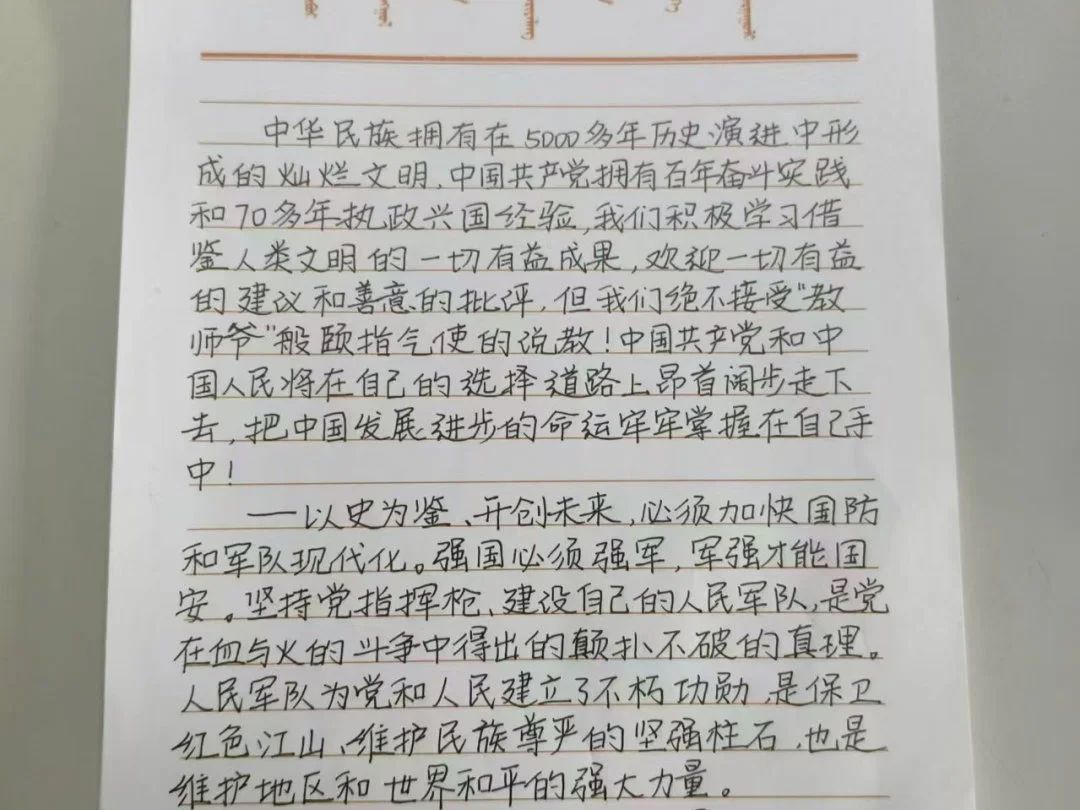 中华民族拥有在5000多年历史演进中形
成的灿烂文明,中国共产党拥有百年奋斗实践
和70多年执政兴国经验,我们积极学习借
鉴人类文明的一切有益成果,欢迎一切有益
的建议和善意的批评,但我们绝不接受“教
师爷”般颐指气使的说教!中国共产党和中
国人民将在自己的选择道路上昂首阔步走下
去,把中国发展进步的命运牢牢掌握在自己手
中!
——以史为鉴、开创未来,必须加快国防
和军队现代化。强国必须强军,军强才能国
安。坚持党指挥枪、建设自己的人民军队,是党
在血与火的斗争中得出的颠扑不破的真理。
人民军队为党和人民建立了不朽功勋,是保卫
红色江山、维护民族尊严的坚强柱石,也是
维护地区和世界和平的强大力量。